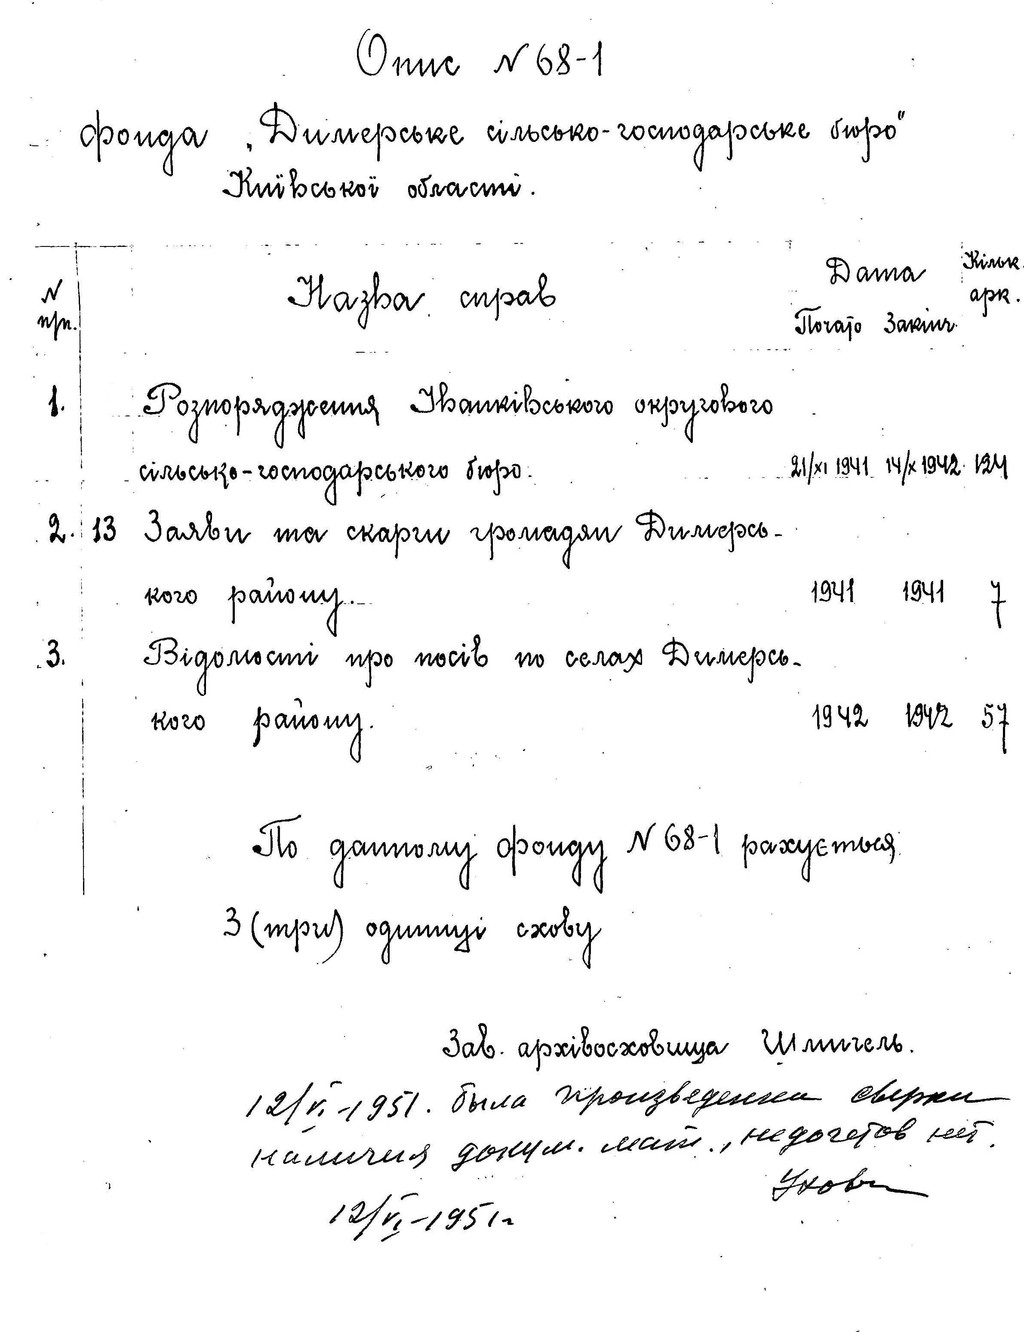 Опис N 68-1
фонда „Димерське сільсько-господарське бюро"
Київської області.
N п/п. Назва справ Дата Кільк. арк.
Почато Закінч.
1. Розпорядження Іванківського округового
сільсько-господарського бюро. 21/XI 1941 14/X 1942 124
2. 13 Заяви та скарги громадян Димерсь-
кого району. 1941 1941 7
3. Відомості про посів по селах Димерсь-
кого району. 1942 1942 57
По данному фонду N 68-1 рахується
3 (три) одиниці схову
Зав. архівосховища Шмигель.
12/VI-1951. была произведенна сверка
наличия докум. мат., недочетов нет.
12/VI-1951г